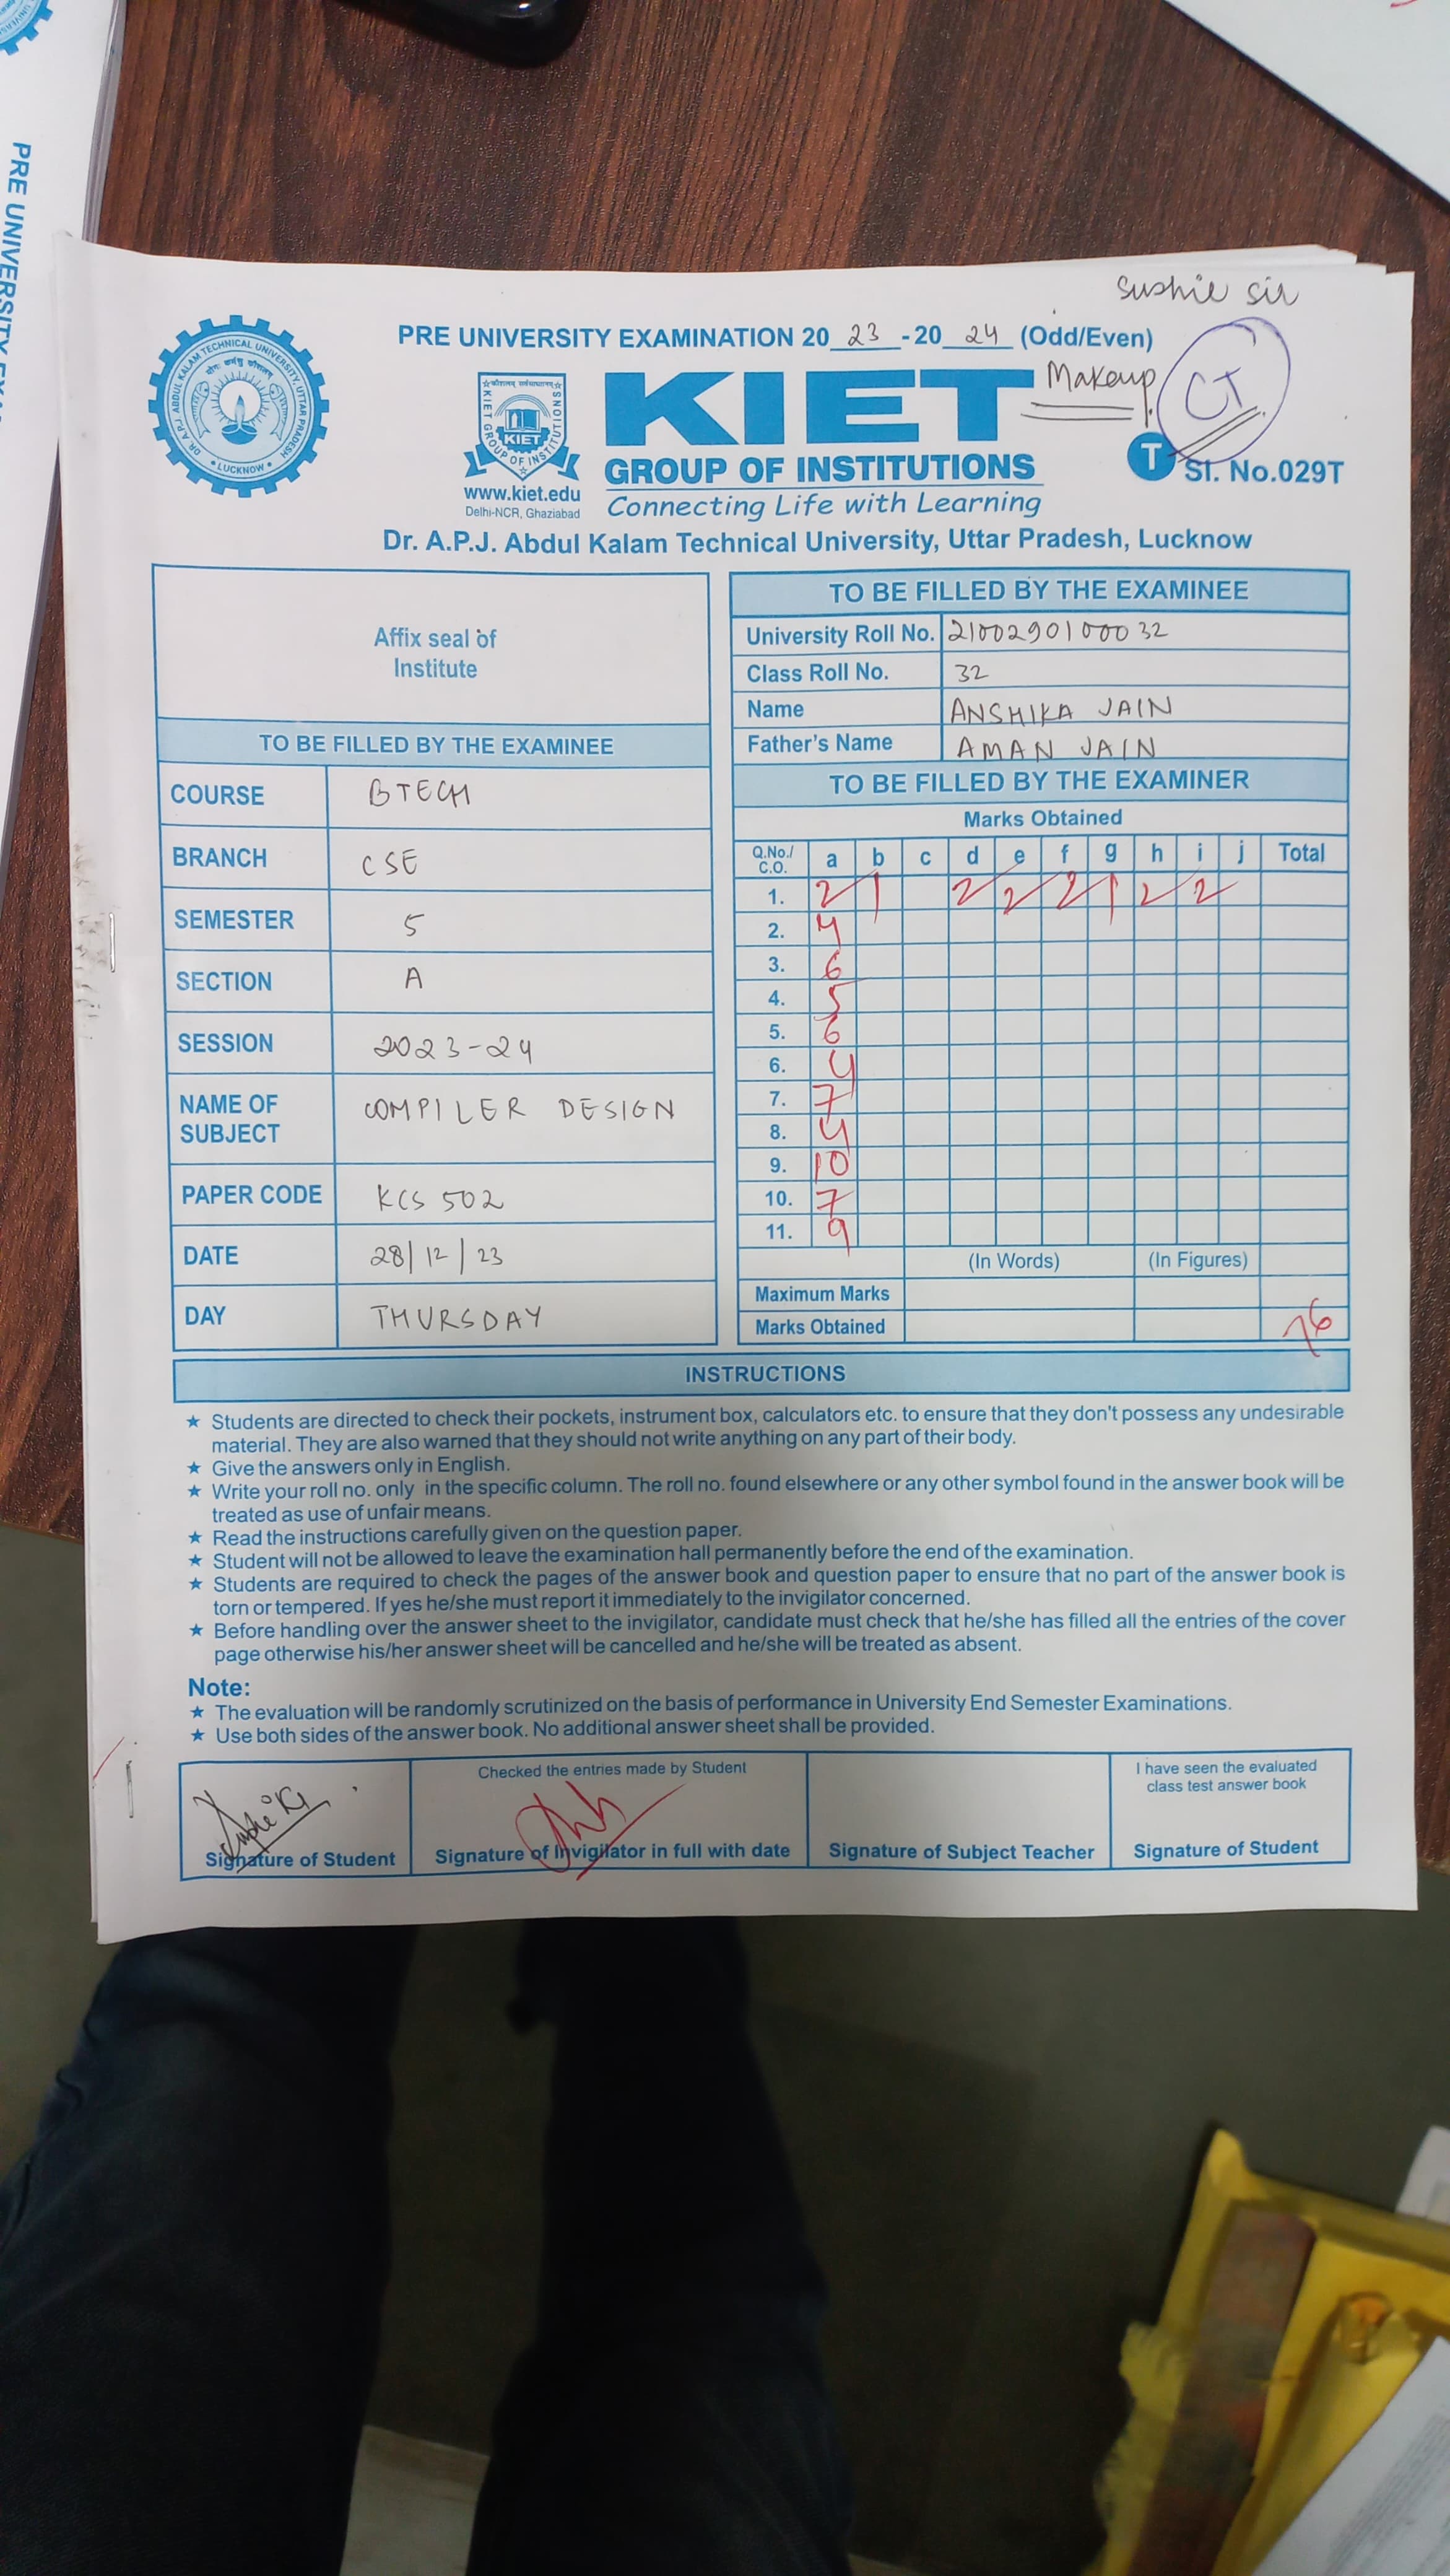 PRE UNIVERSITY EXA
Sushil Sir
PRE UNIVERSITY EXAMINATION 20 23 - 20 24 (Odd/Even)
Makeup
CT
DR. A.P.J. ABDUL KALAM TECHNICAL UNIVERSITY, UTTAR PRADESH
LUCKNOW
KIET GROUP OF INSTITUTIONS
KIET
www.kiet.edu
Delhi-NCR, Ghaziabad
KIET
GROUP OF INSTITUTIONS
Connecting Life with Learning
T Sl. No.029T
Dr. A.P.J. Abdul Kalam Technical University, Uttar Pradesh, Lucknow
Affix seal of
Institute
TO BE FILLED BY THE EXAMINEE
COURSE BTECH
BRANCH CSE
SEMESTER 5
SECTION A
SESSION 2023-24
NAME OF
SUBJECT COMPILER DESIGN
PAPER CODE KCS 502
DATE 28/12/23
DAY THURSDAY
TO BE FILLED BY THE EXAMINEE
University Roll No. 2100290100032
Class Roll No. 32
Name ANSHIKA JAIN
Father's Name AMAN JAIN
TO BE FILLED BY THE EXAMINER
Marks Obtained
Q.No./
C.O. a b c d e f g h i j Total
1. 2 1 2 2 2 1 2 2
2. 4
3. 6
4. 5
5. 6
6. 4
7. 7
8. 4
9. 10
10. 7
11. 9
(In Words) (In Figures)
Maximum Marks
Marks Obtained 76
INSTRUCTIONS
★ Students are directed to check their pockets, instrument box, calculators etc. to ensure that they don't possess any undesirable
material. They are also warned that they should not write anything on any part of their body.
★ Give the answers only in English.
★ Write your roll no. only in the specific column. The roll no. found elsewhere or any other symbol found in the answer book will be
treated as use of unfair means.
★ Read the instructions carefully given on the question paper.
★ Student will not be allowed to leave the examination hall permanently before the end of the examination.
★ Students are required to check the pages of the answer book and question paper to ensure that no part of the answer book is
torn or tempered. If yes he/she must report it immediately to the invigilator concerned.
★ Before handling over the answer sheet to the invigilator, candidate must check that he/she has filled all the entries of the cover
page otherwise his/her answer sheet will be cancelled and he/she will be treated as absent.
Note:
★ The evaluation will be randomly scrutinized on the basis of performance in University End Semester Examinations.
★ Use both sides of the answer book. No additional answer sheet shall be provided.
Signature of Student
Checked the entries made by Student
Signature of Invigilator in full with date
Signature of Subject Teacher
I have seen the evaluated
class test answer book
Signature of Student